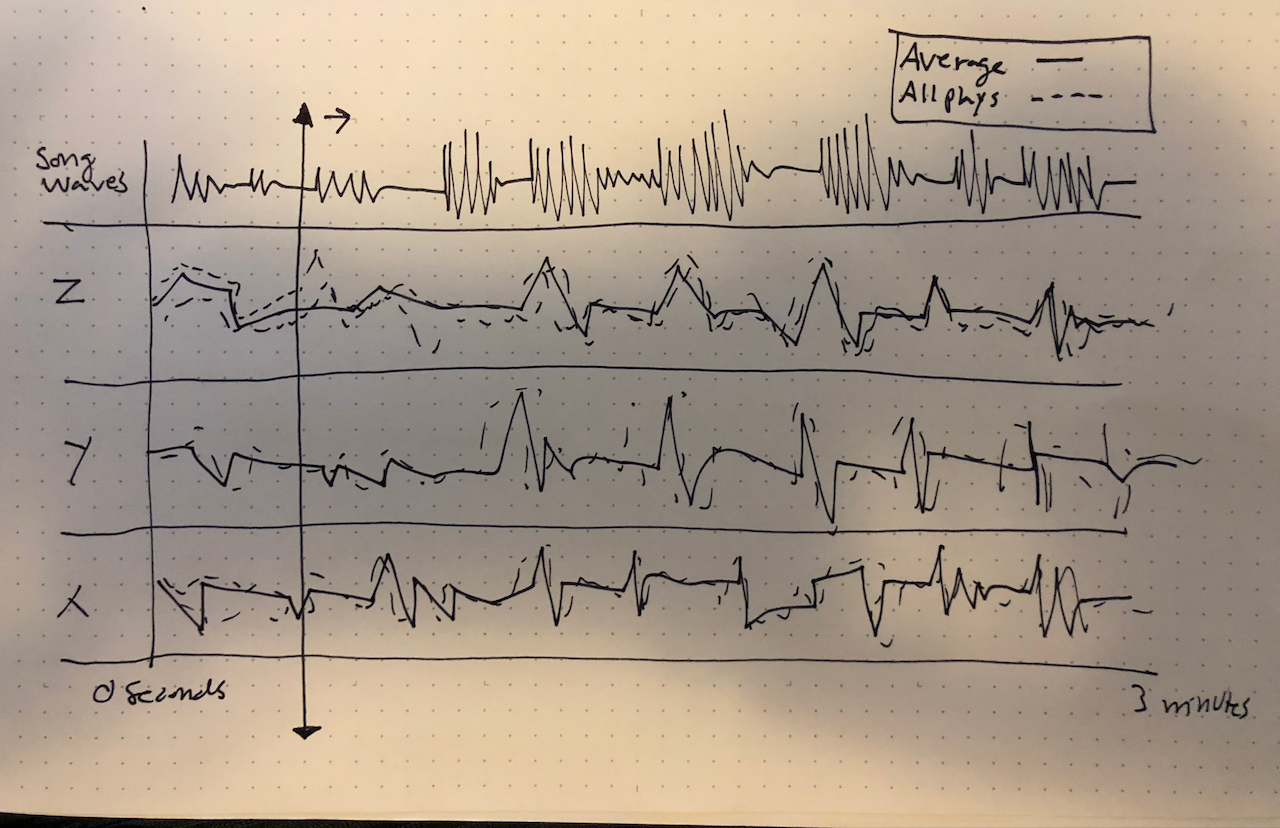 Average
All phys
Song
Waves
Z
Y
X
0 Seconds
3 minutes